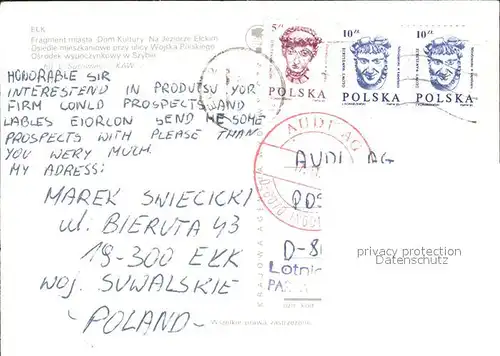 EŁK
Fragment miasta Dom Kultury Na Jeziorze Ełckim
Osiedle mieszkaniowe przy ulicy Wojska Polskiego
Ośrodek wypoczynkowy w Szybie
KAW
HONORABLE SIR
INTERESTEND IN PRODUTSU YOR
FIRM COWLD PROSPECTS AND
LABLES EIORLON SEND ME SOME
PROSPECTS WITH PLEASE THAN
YOU WERY MUCH.
MY ADRESS:
MAREK SWIECICKI
ul. BIERUTA 43
19-300 EŁK
WOJ. SUWALSKIE
-POLAND-
Wszelkie prawa zastrzeżone
KRAJOWA
5 zł
POLSKA
10 zł
POLSKA
10 zł
POLSKA
AUDI AG
AUDI AG
POS
D-8
Lotni
privacy protection
Datenschutz